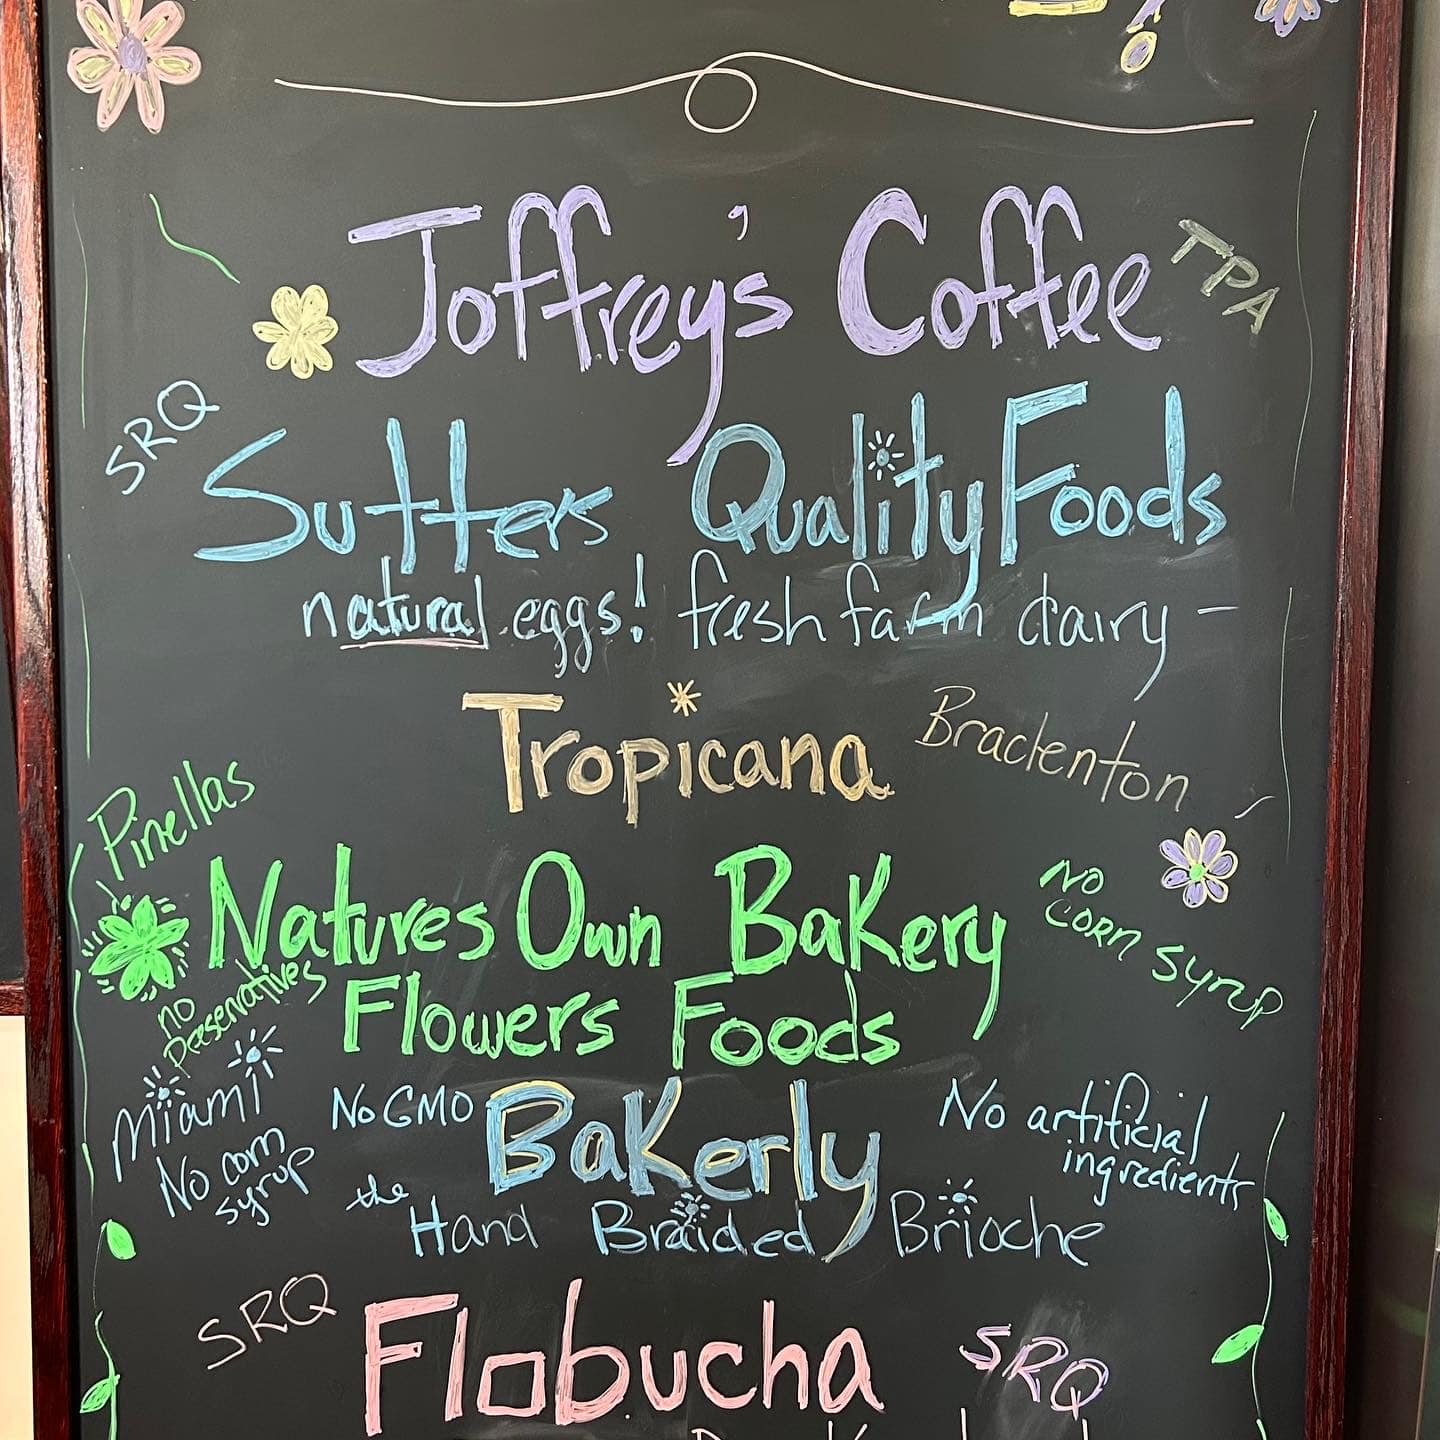 Joffrey's Coffee
TPA
SRQ
Sutters Quality Foods
natural eggs! fresh farm dairy -
Tropicana
Bradenton
Pinellas
Natures Own Bakery
No
corn syrup
no
preservatives
Flowers Foods
Miami
No corn
syrup
No GMO
Bakerly
No artificial
ingredients
the
Hand Braided Brioche
SRQ
Flobucha
SRQ